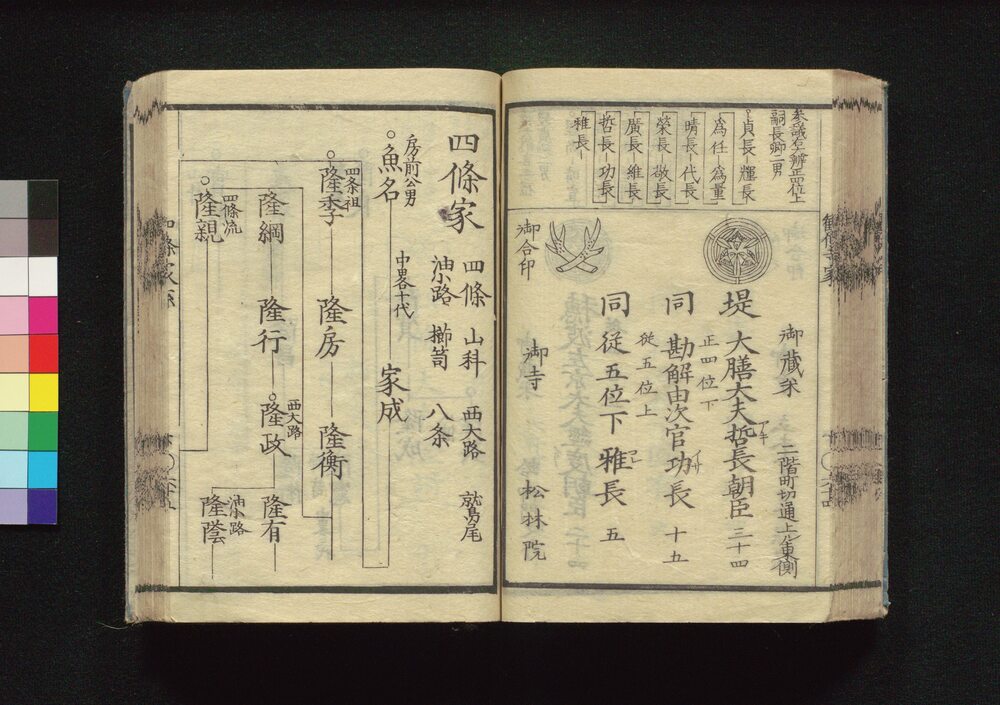 参議左大辨正四位上
嗣長卿二男
貞長 輝長
為任 為量
晴長 代長
榮長 敬長
廣長 維長
哲長 功長
雅長
堤 大膳大夫哲長朝臣 三十四
正四位下
同 勘解由次官功長 十五
従五位上
同 従五位下 雅長 五
御蔵米 二階町切通上ル東側
御合印
御寺 松林院
四條家 四條 山科 西大路 鷲尾
油小路 櫛笥 八条
房前公男
魚名 中畧十代 家成
四条祖
隆季 隆房 隆衡
隆綱 隆行 西大路 隆政 隆有
四條流
隆親 油小路 隆蔭
四條家